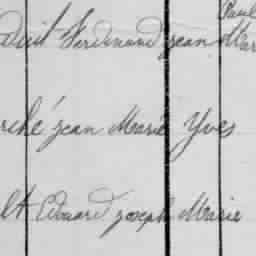 Paul
Ferdinand Jean Mar
rché Jean Marie Yves
lt Edouard Joseph Marie